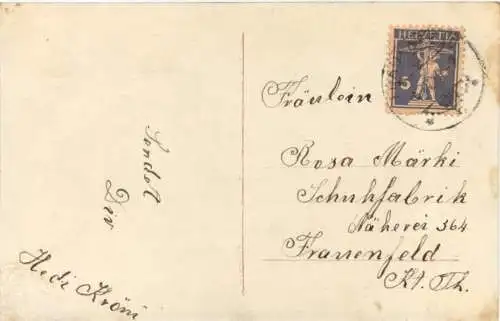 Sendet
Dir
Hedi Kröni
HELVETIA
5
Fräulein
Rosa Märki
Schuhfabrik
Näherei 364
Frauenfeld
Kt. Th.